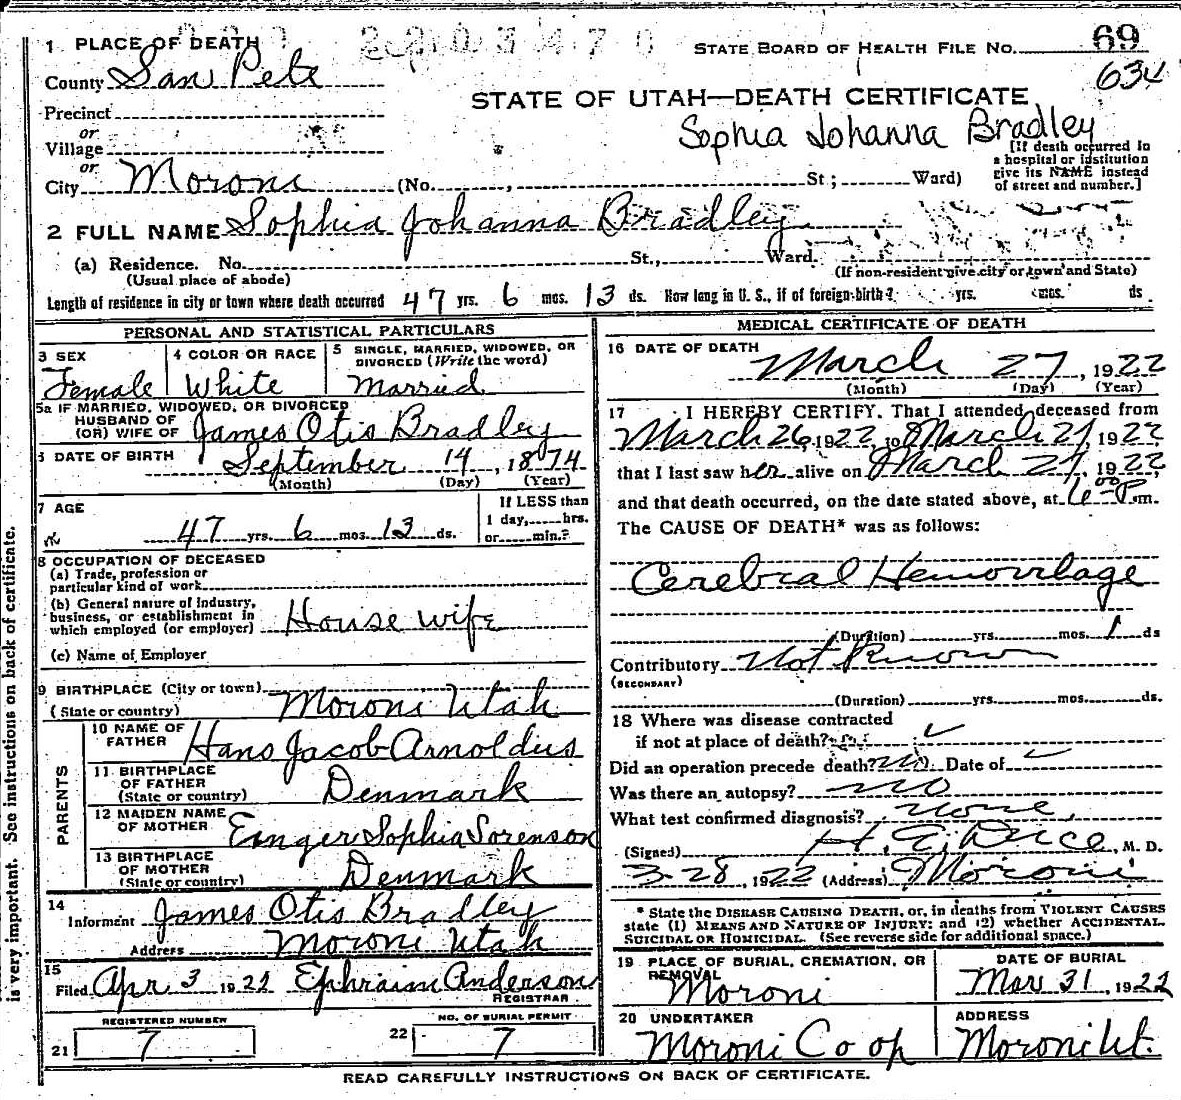 1 PLACE OF DEATH
STATE BOARD OF HEALTH FILE NO. 69
County San Pete
634
STATE OF UTAH—DEATH CERTIFICATE
Precinct
or
Village
Sophia Johanna Bradley
or
City Moroni (No. , St; Ward)
[If death occurred in a hospital or institution give its NAME instead of street and number.]
2 FULL NAME Sophia Johanna Bradley
(a) Residence. No. St., Ward.
(Usual place of abode) (If non-resident give city or town and State)
Length of residence in city or town where death occurred 47 yrs. 6 mos. 13 ds. How long in U. S., if of foreign birth? yrs. mos. ds.
PERSONAL AND STATISTICAL PARTICULARS
3 SEX
Female
4 COLOR OR RACE
White
5 SINGLE, MARRIED, WIDOWED, OR
DIVORCED (Write the word)
Married
5a IF MARRIED, WIDOWED, OR DIVORCED
HUSBAND OF
(OR) WIFE OF James Otis Bradley
6 DATE OF BIRTH September 14, 1874
(Month) (Day) (Year)
7 AGE
47 yrs. 6 mos. 13 ds.
If LESS than
1 day, hrs.
or min.?
8 OCCUPATION OF DECEASED
(a) Trade, profession or
particular kind of work
(b) General nature of industry,
business, or establishment in
which employed (or employer) House wife
(c) Name of Employer
9 BIRTHPLACE (City or town)
(State or country) Moroni Utah
PARENTS
10 NAME OF
FATHER Hans Jacob Arnoldus
11 BIRTHPLACE
OF FATHER
(State or country) Denmark
12 MAIDEN NAME
OF MOTHER Sophia Sorenson
13 BIRTHPLACE
OF MOTHER
(State or country) Denmark
14
Informent James Otis Bradley
Address Moroni Utah
15
Filed Apr 3 1922 Ephraim Anderson
REGISTRAR
REGISTERED NUMBER
21 7
NO. OF BURIAL PERMIT
22 7
MEDICAL CERTIFICATE OF DEATH
16 DATE OF DEATH
March 27, 1922
(Month) (Day) (Year)
17 I HEREBY CERTIFY. That I attended deceased from
March 26, 1922, to March 27, 1922
that I last saw her alive on March 27, 1922,
and that death occurred, on the date stated above, at 6:00 P.m.
The CAUSE OF DEATH* was as follows:
Cerebral Hemorrhage
(Duration) yrs. mos. 1 ds
Contributory Not Known
(SECONDARY)
(Duration) yrs. mos. ds.
18 Where was disease contracted
if not at place of death?
Did an operation precede death? No. Date of
Was there an autopsy? No
What test confirmed diagnosis? None
(Signed) , M. D.
3-28, 1922 (Address) Moroni
* State the DISEASE CAUSING DEATH, or, in deaths from VIOLENT CAUSES
state (1) MEANS AND NATURE OF INJURY; and (2) whether ACCIDENTAL.
SUICIDAL OR HOMICIDAL. (See reverse side for additional space.)
19 PLACE OF BURIAL, CREMATION, OR
REMOVAL
Moroni
DATE OF BURIAL
Mar 31, 1922
20 UNDERTAKER
Moroni Co op
ADDRESS
Moroni Ut.
READ CAREFULLY INSTRUCTIONS ON BACK OF CERTIFICATE.
is very important. See instructions on back of certificate.